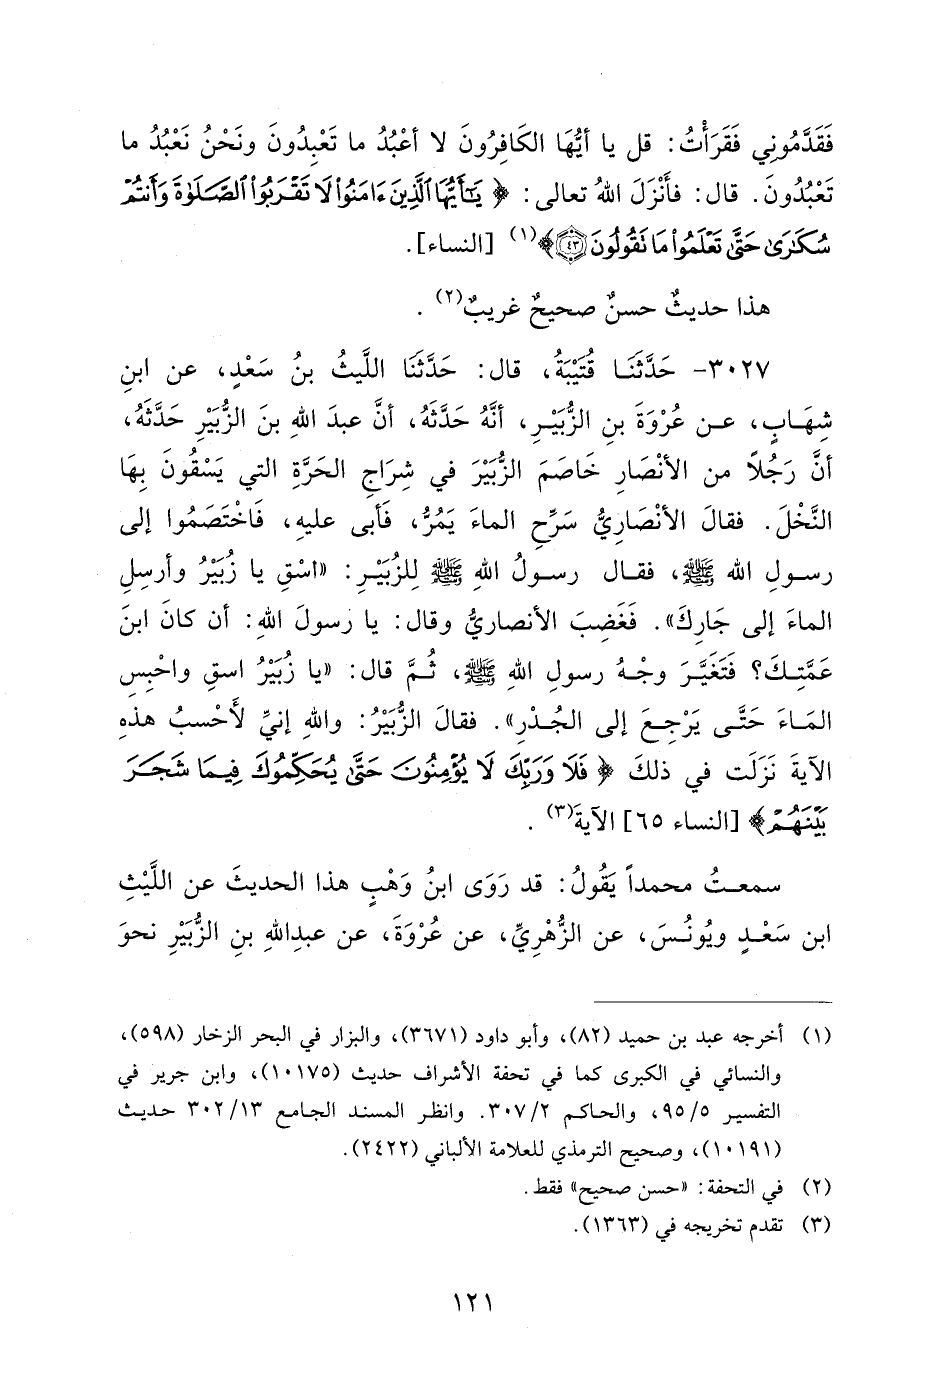 فَقَدَّمُونِي فَقَرَأْتُ: قل يا أيُّهَا الكَافِرُونَ لا أعْبُدُ ما تَعْبِدُونَ ونَحْنُ نَعْبُدُ ما
تَعْبُدُونَ. قال: فأنْزَلَ اللهُ تعالى: ﴿ يَٰٓأَيُّهَا ٱلَّذِينَ ءَامَنُوا۟ لَا تَقْرَبُوا۟ ٱلصَّلَوٰةَ وَأَنتُمْ
سُكَٰرَىٰ حَتَّىٰ تَعْلَمُوا۟ مَا تَقُولُونَ ٤٣﴾(١) [النساء].
هذا حديثٌ حسنٌ صحيحٌ غريبٌ(٢) .
٣٠٢٧- حَدَّثَنَا قُتَيْبَةُ، قال: حَدَّثَنَا اللَّيثُ بنُ سَعْدٍ، عن ابنِ
شِهَابٍ، عن عُرْوَةَ بنِ الزُّبَيْرِ، أنَّهُ حَدَّثَهُ، أنَّ عبدَ اللهِ بنَ الزُّبَيْرِ حَدَّثَهُ،
أنَّ رَجُلاً من الأنْصَارِ خَاصَمَ الزُّبَيْرَ في شِرَاجِ الحَرَّةِ التي يَسْقُونَ بِهَا
النَّخْلَ. فقالَ الأنْصَارِيُّ سَرِّحِ الماءَ يَمُرُّ، فَأبى عليهِ، فَاخْتَصَمُوا إلى
رسولِ الله ﷺ، فقال رسولُ اللهِ ﷺ لِلزُبَيْرِ: «اسْقِ يا زُبَيْرُ وأرسِلِ
الماءَ إلى جَارِكَ». فَغَضِبَ الأنصاريُّ وقال: يا رسولَ اللهِ: أن كانَ ابنَ
عَمَّتِكَ؟ فَتَغَيَّرَ وجْهُ رسولِ اللهِ ﷺ، ثُمَّ قال: «يا زُبَيْرُ اسقِ واحْبِسِ
المَاءَ حَتَّى يَرْجِعَ إلى الجُدْرِ». فقالَ الزُّبَيْرُ: واللهِ إنيِّ لَأحْسبُ هذه
الآيةَ نَزَلَت في ذلكَ ﴿ فَلَا وَرَبِّكَ لَا يُؤْمِنُونَ حَتَّىٰ يُحَكِّمُوكَ فِيمَا شَجَرَ
بَيْنَهُمْ﴾ [النساء ٦٥] الآيةَ(٣) .
سمعتُ محمداً يَقُولُ: قد رَوَى ابنُ وَهْبٍ هذا الحديثَ عن اللَّيْثِ
ابن سَعْدٍ ويُونُسَ، عن الزُّهْرِيِّ، عن عُرْوَةَ، عن عبدِاللهِ بنِ الزُّبَيْرِ نحوَ
(١) أخرجه عبد بن حميد (٨٢)، وأبو داود (٣٦٧١)، والبزار في البحر الزخار (٥٩٨)،
والنسائي في الكبرى كما في تحفة الأشراف حديث (١٠١٧٥)، وابن جرير في
التفسير ٥/ ٩٥، والحاكم ٢/ ٣٠٧. وانظر المسند الجامع ١٣/ ٣٠٢ حديث
(١٠١٩١)، وصحيح الترمذي للعلامة الألباني (٢٤٢٢).
(٢) في التحفة: «حسن صحيح» فقط.
(٣) تقدم تخريجه في (١٣٦٣).
١٢١